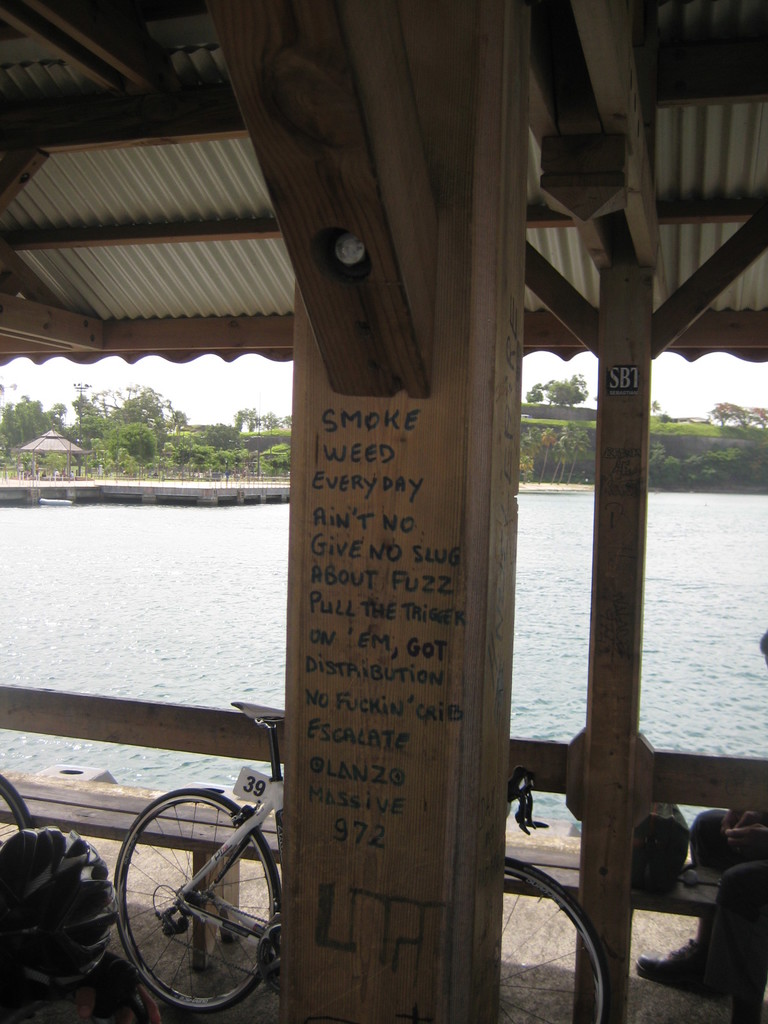 SMOKE
WEED
EVERYDAY
AIN'T NO
GIVE NO SLUG
ABOUT FUZZ
PULL THE TRIGGER
ON 'EM, GOT
DISTRIBUTION
NO FUCKIN' CRIB
ESCALATE
OLANZO
MASSIVE
972
SBT
39